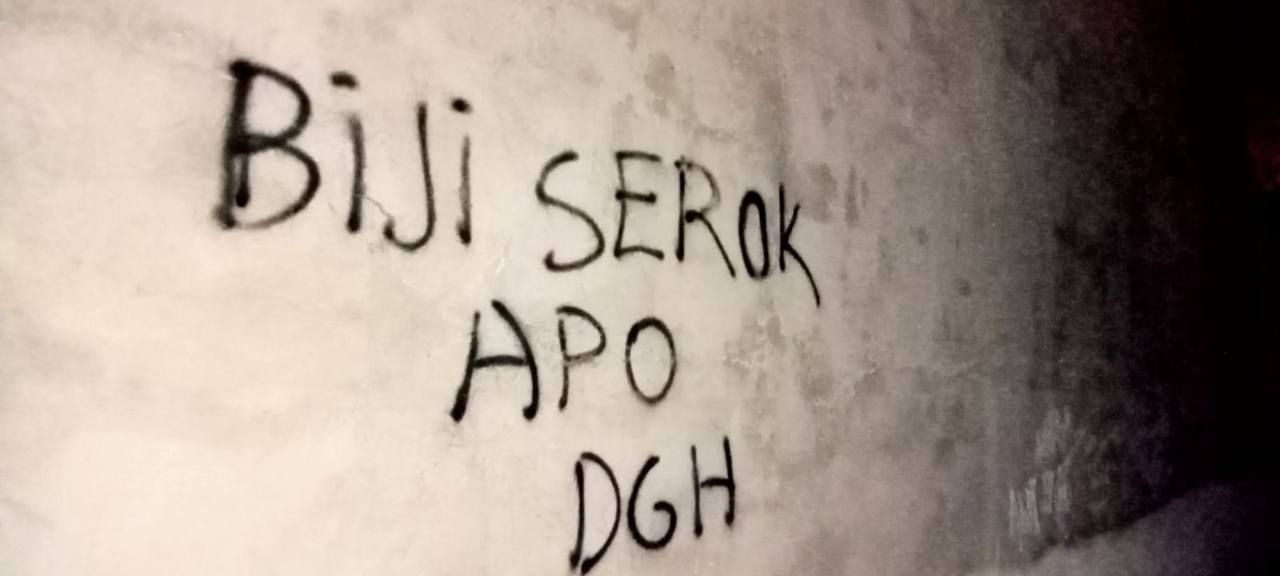 BiJi SEROK
APO
DGH